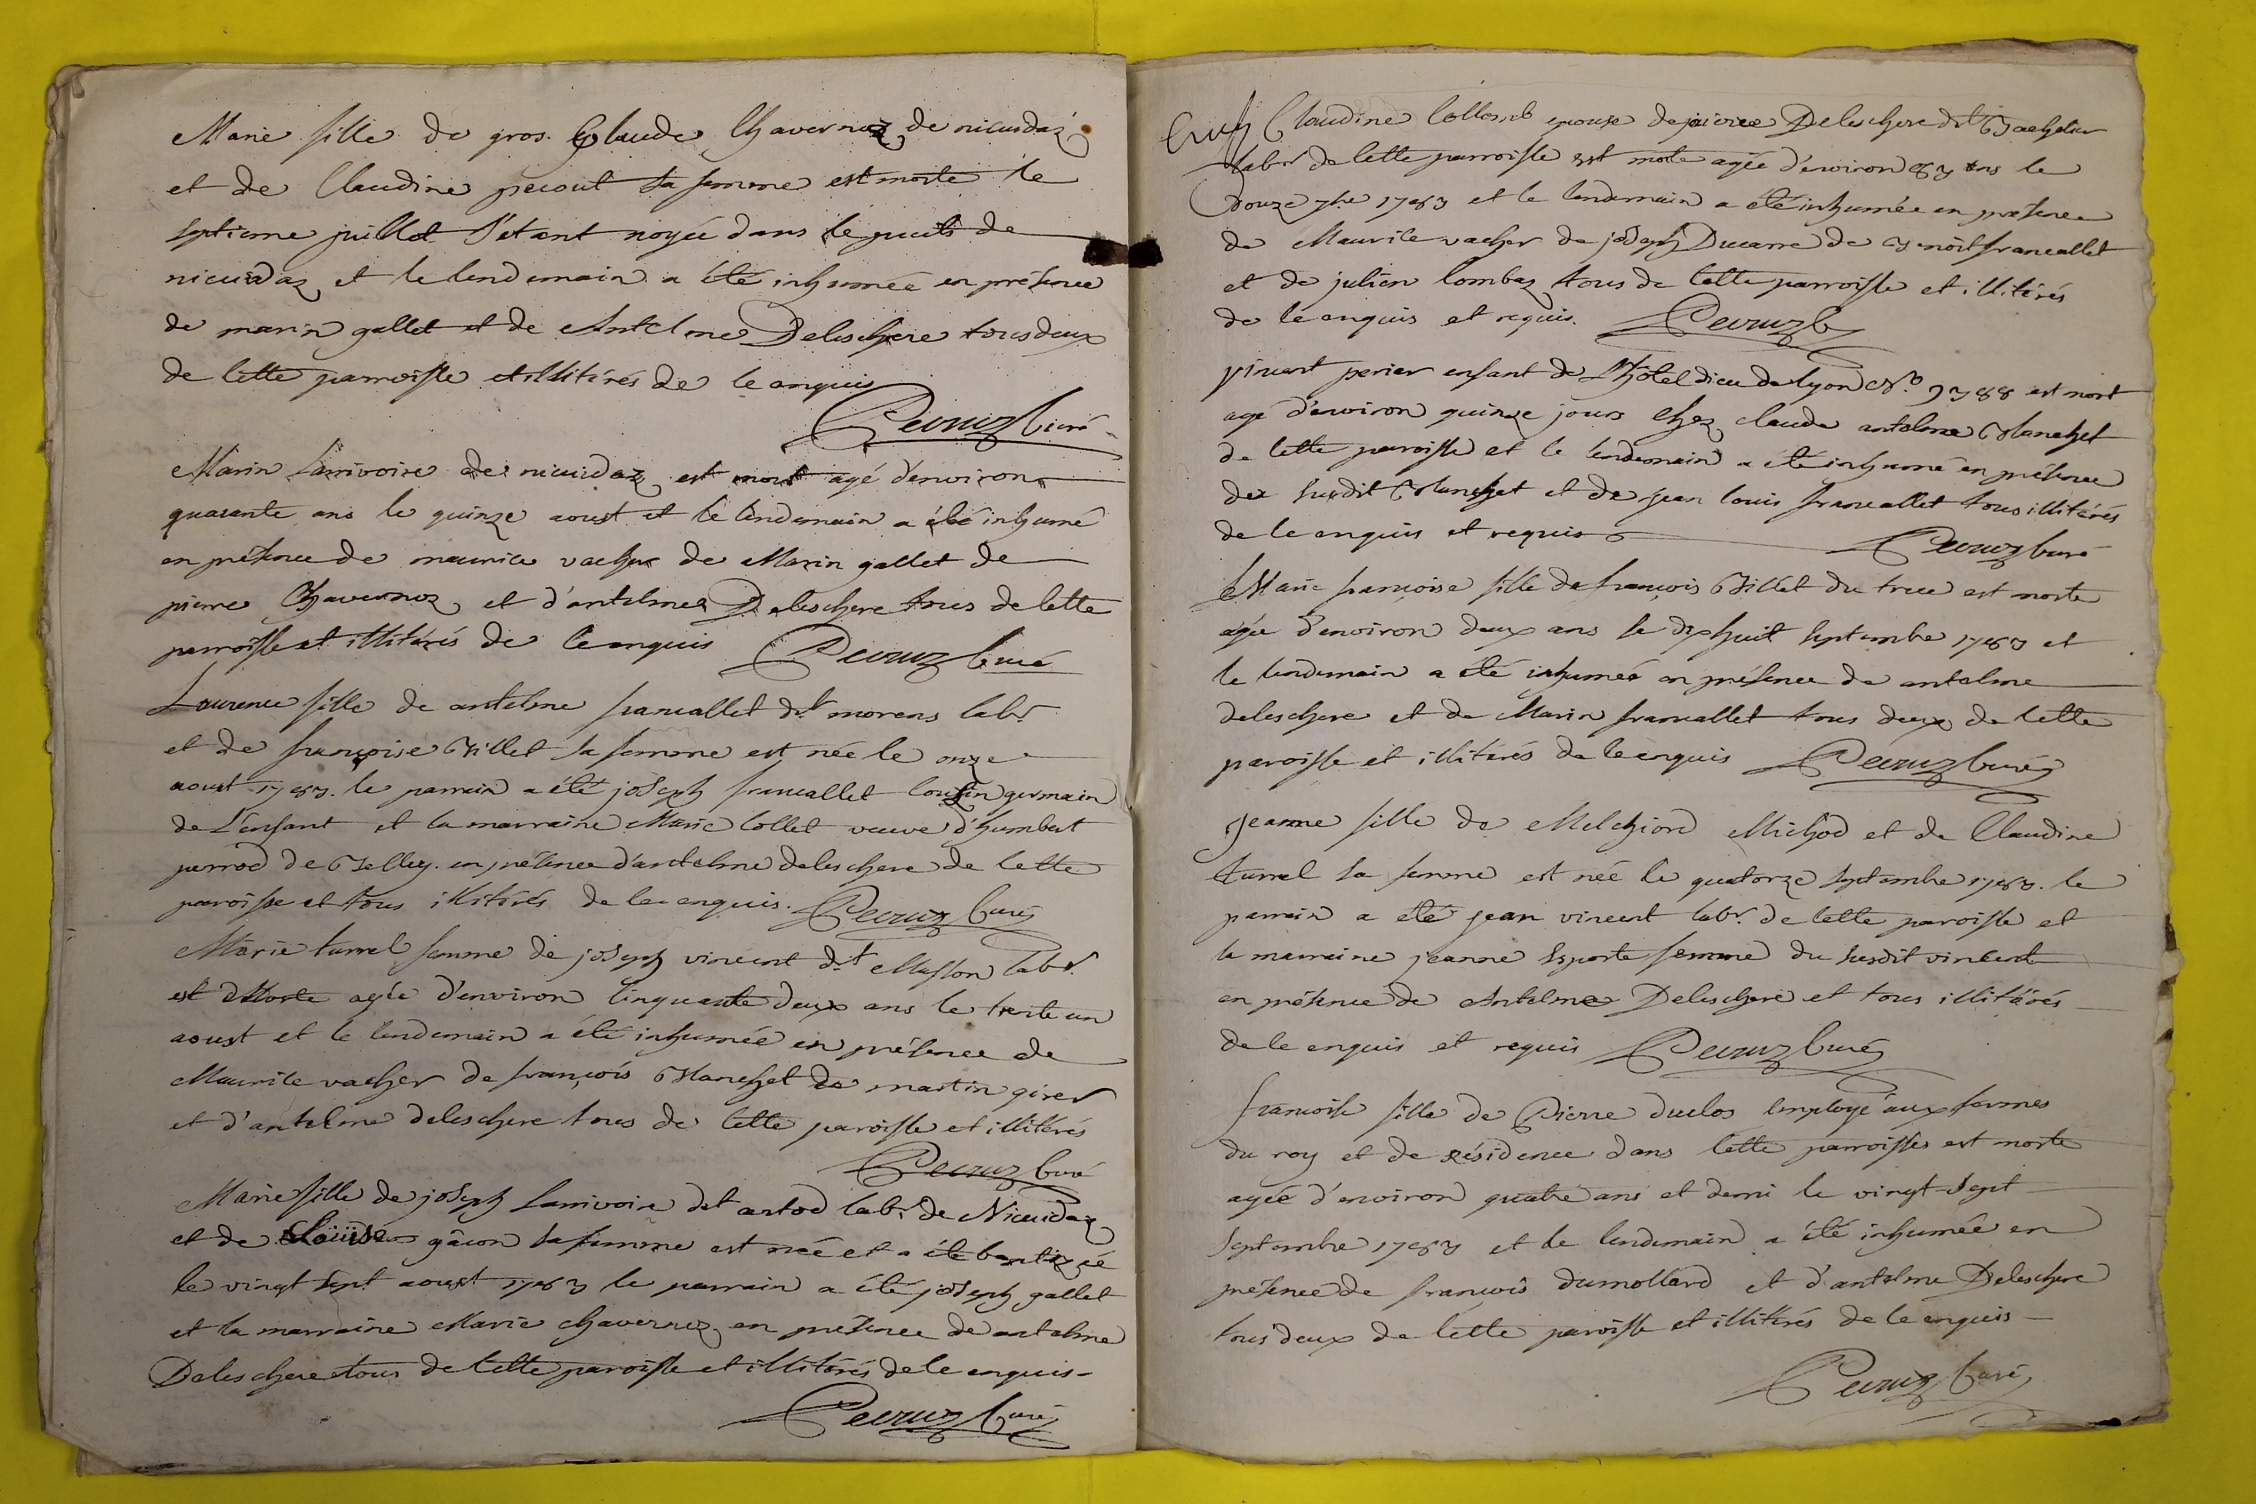 Marie fille de gros Claude Chavernoz de nicuidaz
et de Claudine pecout sa femme est morte le
septieme juillet s'etant noyée dans le puits de
nicuidaz et le lendemain a été inhumée en présence
de marin gallet et de Antelme Deleschere tous deux
de cette parroisse et illitérés de ce enquis
Curé
Marin Larrivoire de nicuidaz est mort agé d'environ
quarante ans le quinze aoust et le lendemain a été inhumé
en présence de maurice vacher de Marin gallet de
pierre Chavernoz et d'antelme Deleschere tous de cette
parroisse et illitérés de ce enquis Curé
Laurence fille de antelme francallet dt morens labr
et de françoise Billet sa femme est née le onze
aoust 1763. le parrain a été joseph francallet cousin germain
de l'enfant et la marraine Marie Collet veuve d'humbert
perrod de Belley. en présence d'antelme deleschere de cette
paroisse et tous illitérés de ce enquis. Curé
Marie turrel femme de joseph vincent dt Masson labr.
est Morte agée d'environ cinquante deux ans le trente un
aoust et le lendemain a été inhumée en présence de
Maurice vacher de françois Blanchet de martin girer
et d'antelme deleschere tous de cette paroisse et illitérés
Curé
Marie fille de joseph Larrivoire dt artod labr. de Nicuidaz
et de Loüise gâcon sa femme est née et a été batizée
le vingt sept aoust 1763 le parrain a été joseph gallet
et la marraine Marie chavernoz en présence de antelme
Deleschere tous de cette paroisse et illitérés de ce enquis
Curé
Claudine Collomb epouse de pierre Deleschere dt Bachelier
labr de cette parroisse est morte agée d'environ 63 ans le
douze 7bre 1763 et le lendemain a été inhumée en présence
de Maurice vacher de joseph Ducarre de Benoit francallet
et de julien Combaz tous de cette parroisse et illitérés
de ce enquis et requis. C
vincent perier enfant de L'hôtel dieu de lyon No. 9788 est mort
agé d'environ quinze jours chez claude antelme Blanchet
de cette paroisse et le lendemain a été inhumé en présence
du susdit Blanchet et de jean louis francallet tous illitérés
de ce enquis et requis Curé
Marie françoise fille de françois Billet du truc est morte
agée d'environ deux ans le dixhuit septembre 1763 et
le lendemain a été inhumée en présence de antelme
deleschere et de Marin francallet tous deux de cette
paroisse et illitérés de ce enquis Curé
Jeanne fille de Melchiord Michod et de Claudine
turrel sa femme est née le quatorze septembre 1763. le
parrain a été jean vincent labr. de cette paroisse et
la marraine jeanne Laporte femme du susdit vincent
en présence de Antelme Deleschere et tous illitérés
de ce enquis et requis Curé
françoise fille de Pierre duclos employé aux fermes
du roy et de résidence dans cette parroisse est morte
agée d'environ quatre ans et demi le vingt-sept
septembre 1763 et le lendemain a été inhumée en
présence de françois dumollard et d'antelme Deleschere
tous deux de cette paroisse et illitérés de ce enquis
Curé